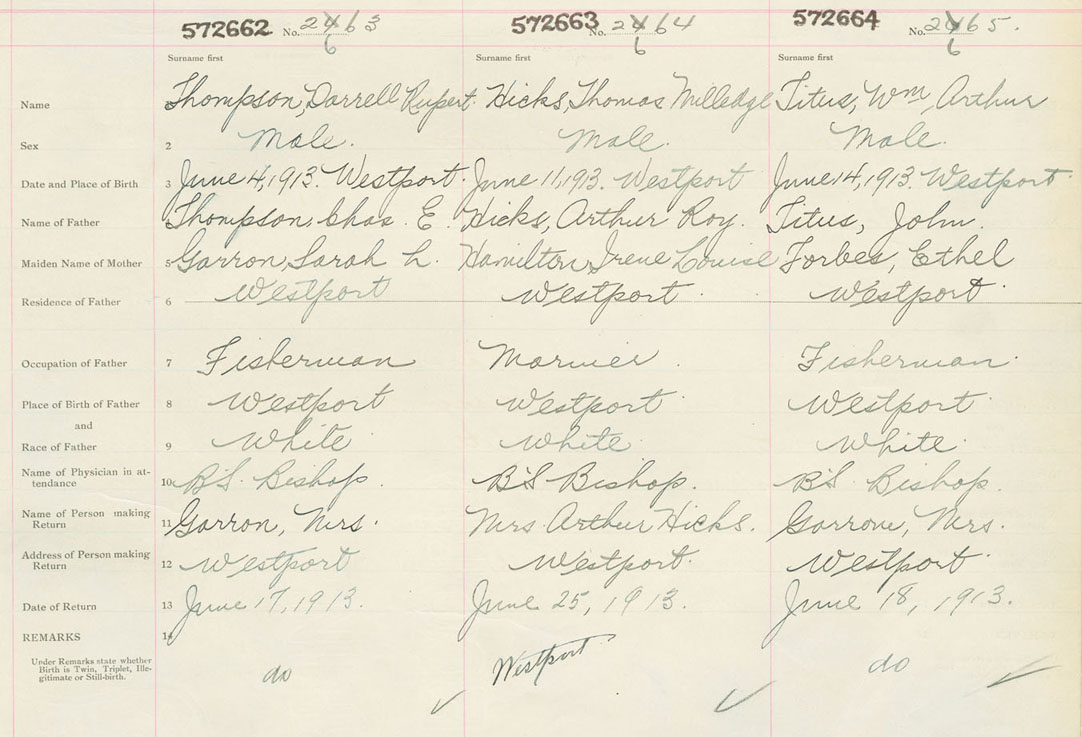 572662 No. 2463 572663 No. 2464 572664 No. 2465.
6 6 6
Surname first Surname first Surname first
Name 1 Thompson, Darrell Rupert. Hicks, Thomas Milledge Titus, Wm Arthur
Sex 2 Male. Male. Male.
Date and Place of Birth 3 June 4, 1913. Westport. June 11, 1913. Westport June 14, 1913. Westport.
Name of Father 4 Thompson, Chas. E. Hicks, Arthur Roy. Titus, John.
Maiden Name of Mother 5 Garron, Sarah L. Hamilton, Irene Louise Forbes, Ethel
Residence of Father 6 Westport Westport. Westport.
Occupation of Father 7 Fisherman Marnier. Fisherman.
Place of Birth of Father 8 Westport Westport. Westport.
and
Race of Father 9 White White. White.
Name of Physician in at-
tendance 10 B.S. Bishop. B.S. Bishop. B.S. Bishop.
Name of Person making
Return 11 Garron, Mrs. Mrs. Arthur Hicks. Garrone, Mrs.
Address of Person making
Return 12 Westport Westport. Westport.
Date of Return 13 June 17, 1913. June 25, 1913. June 18, 1913.
REMARKS 14
Under Remarks state whether
Birth is Twin, Triplet, Ille-
gitimate or Still-birth.
do Westport do